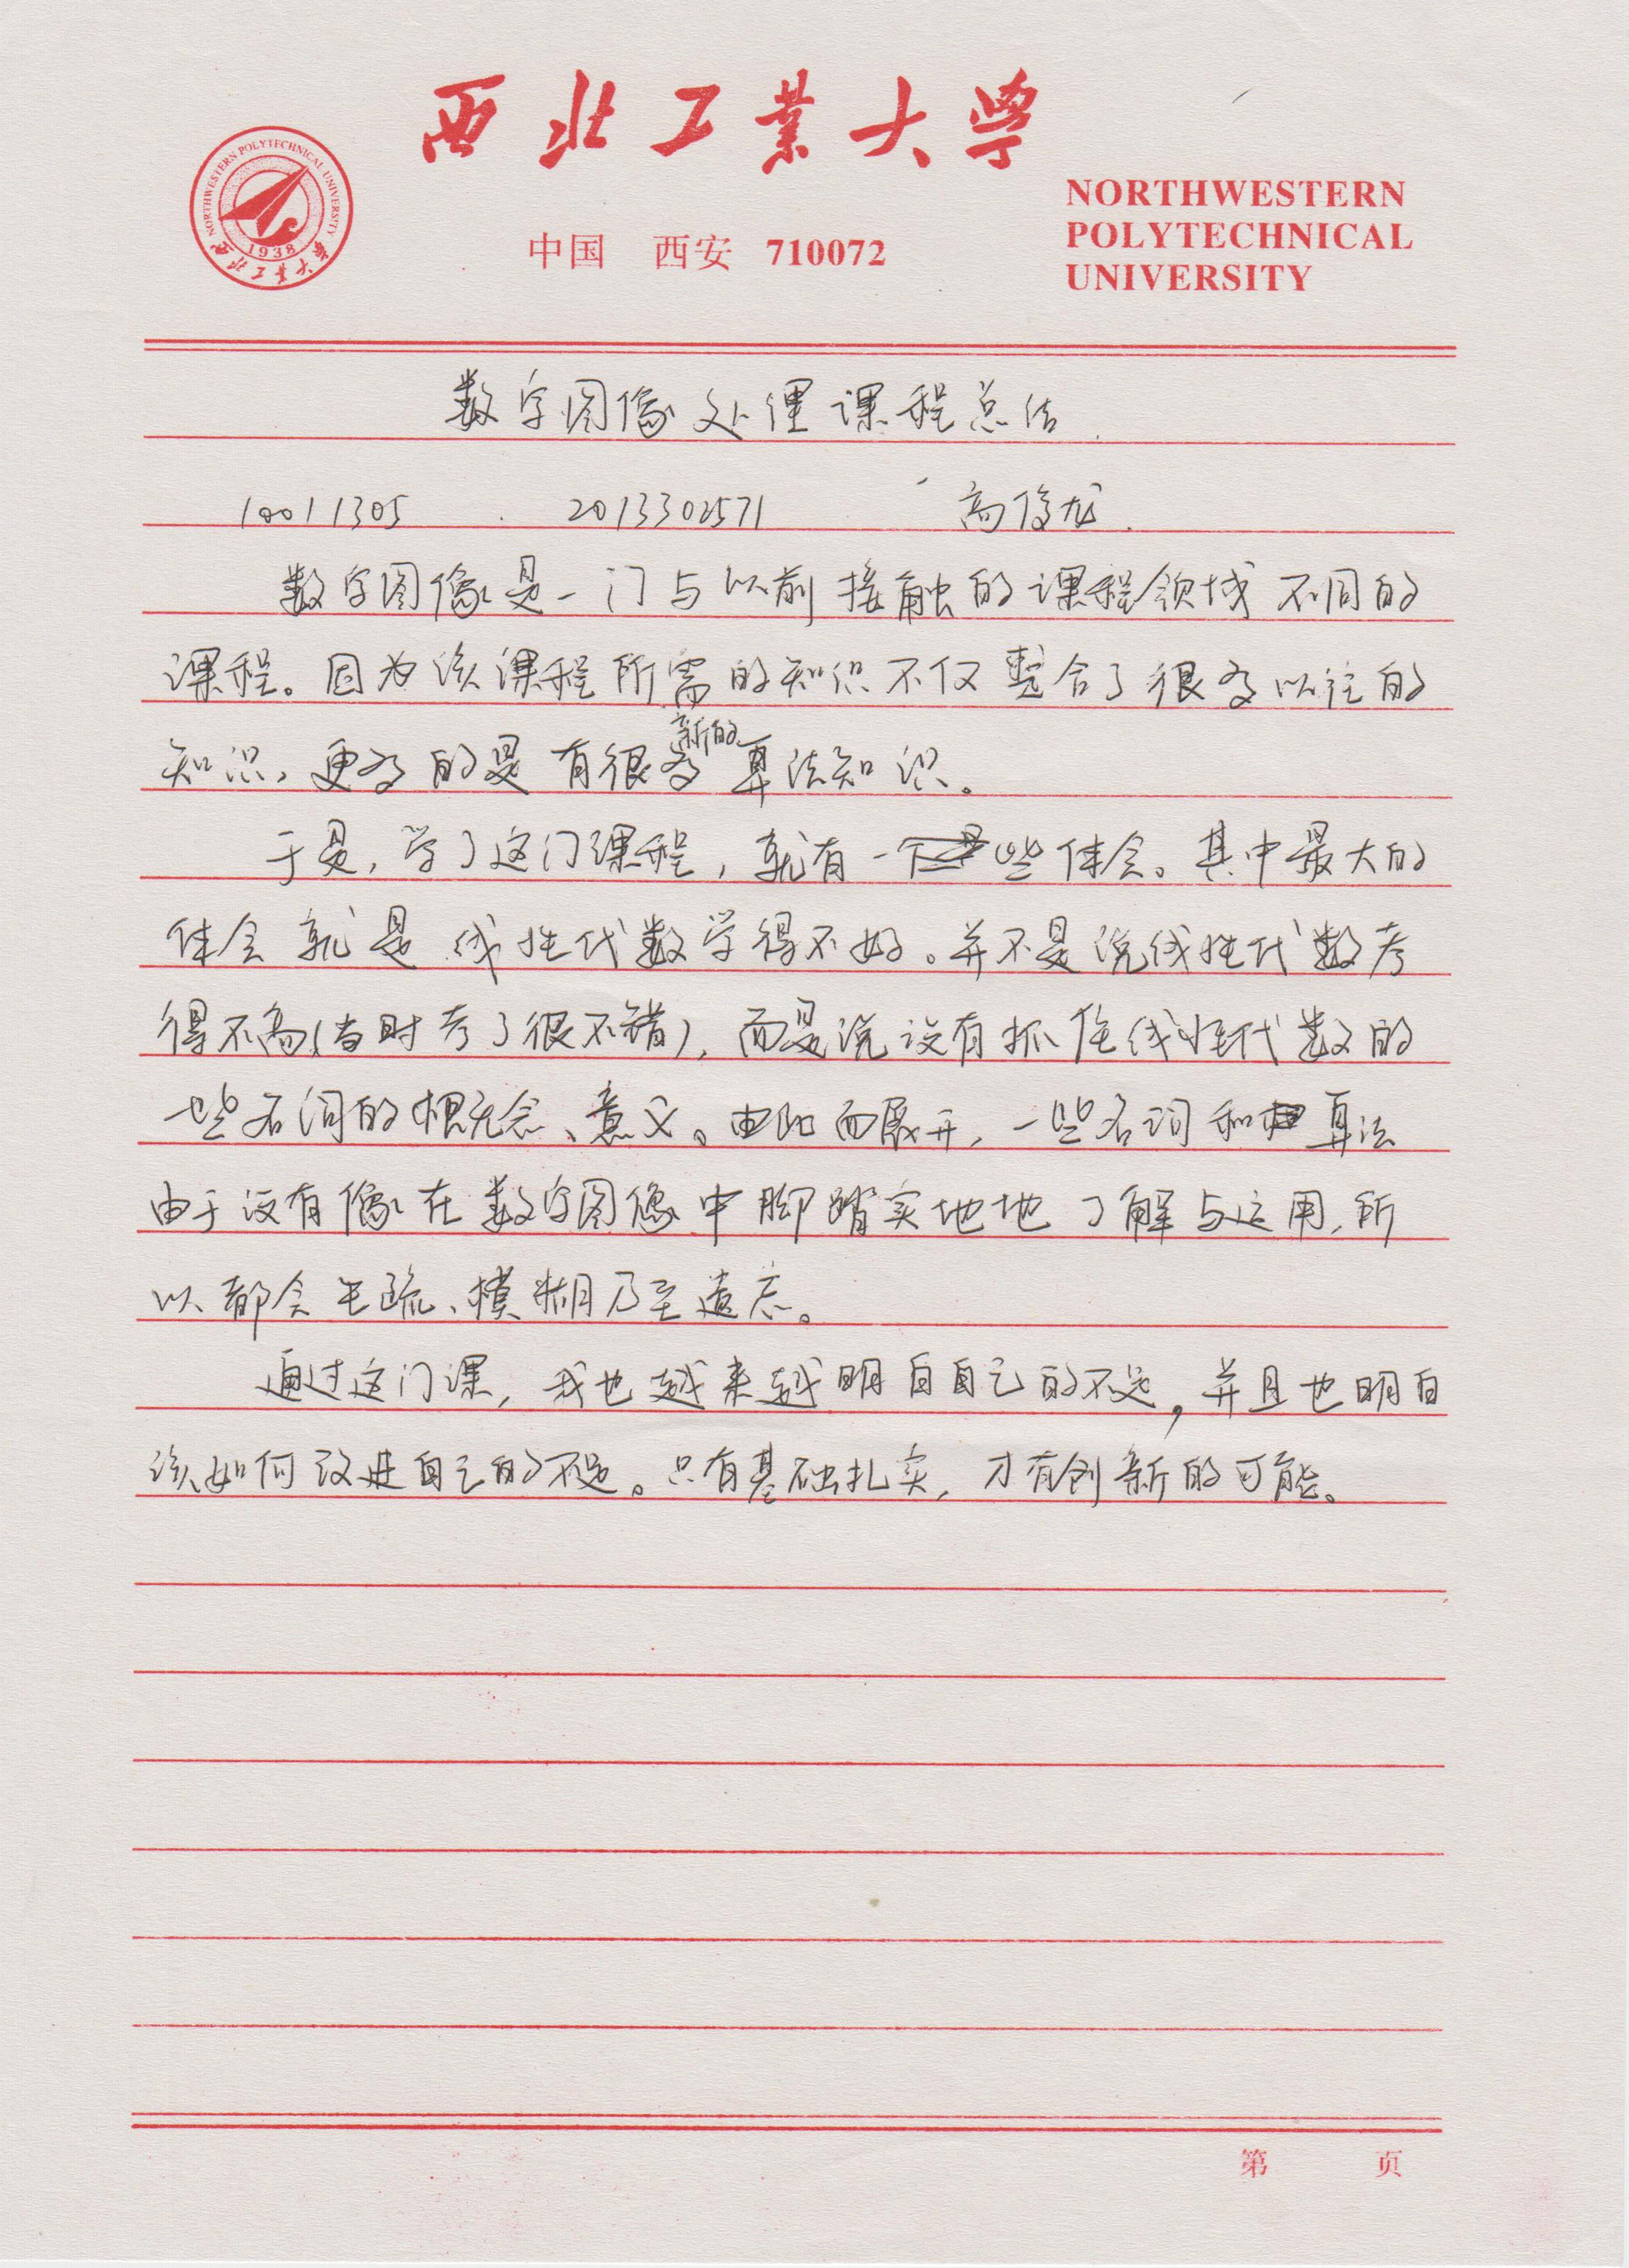 西北工业大学
NORTHWESTERN POLYTECHNICAL UNIVERSITY
1938
西北工业大学
中国 西安 710072
NORTHWESTERN
POLYTECHNICAL
UNIVERSITY
数字图像处理课程总结
10011305 2013302571 高俊龙
数字图像是一门与以前接触的课程领域不同的
课程。因为该课程所需的知识不仅整合了很多以往的
知识,更多的是有很多新的算法知识。
于是,学了这门课程,就有一些体会。其中最大的
体会就是线性代数学得不好。并不是说线性代数考
得不高(当时考了很不错),而是说没有抓住线性代数的
一些名词的概念、意义。由此而展开,一些名词和算法
由于没有像在数字图像中脚踏实地地了解与运用,所
以都会生疏、模糊乃至遗忘。
通过这门课,我也越来越明白自己的不足,并且也明白
该如何改进自己的不足。只有基础扎实,才有创新的可能。
第 页